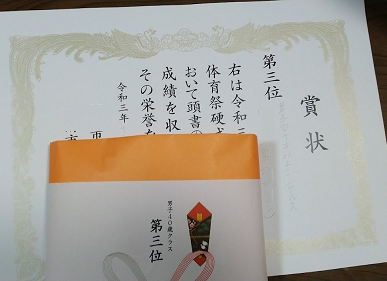 賞状
第三位
右は令和三
体育祭硬式
おいて頭書の
成績を収
その栄誉を
令和三年
男子40歳クラス
第三位